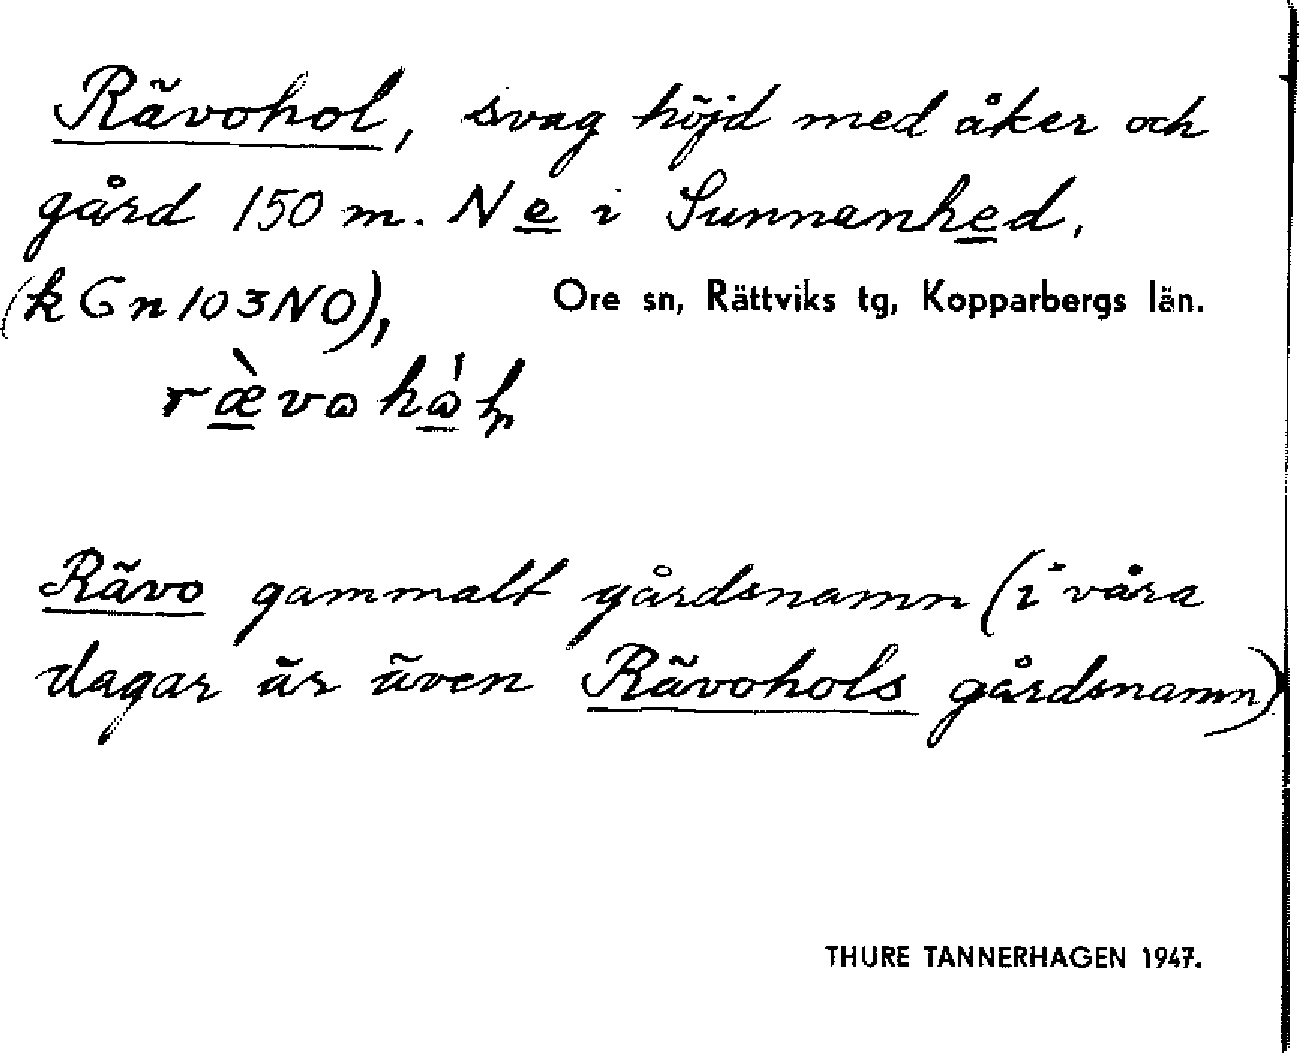 Rävohol, svag höjd med åker och
gård 150 m. N e i Sunnanhed.
(k G n 103 NO), Ore sn, Rättviks tg, Kopparbergs län.
Rävo gammalt gårdsnamn (i våra
dagar är även Rävohols gårdsnamn)
THURE TANNERHAGEN 1947.